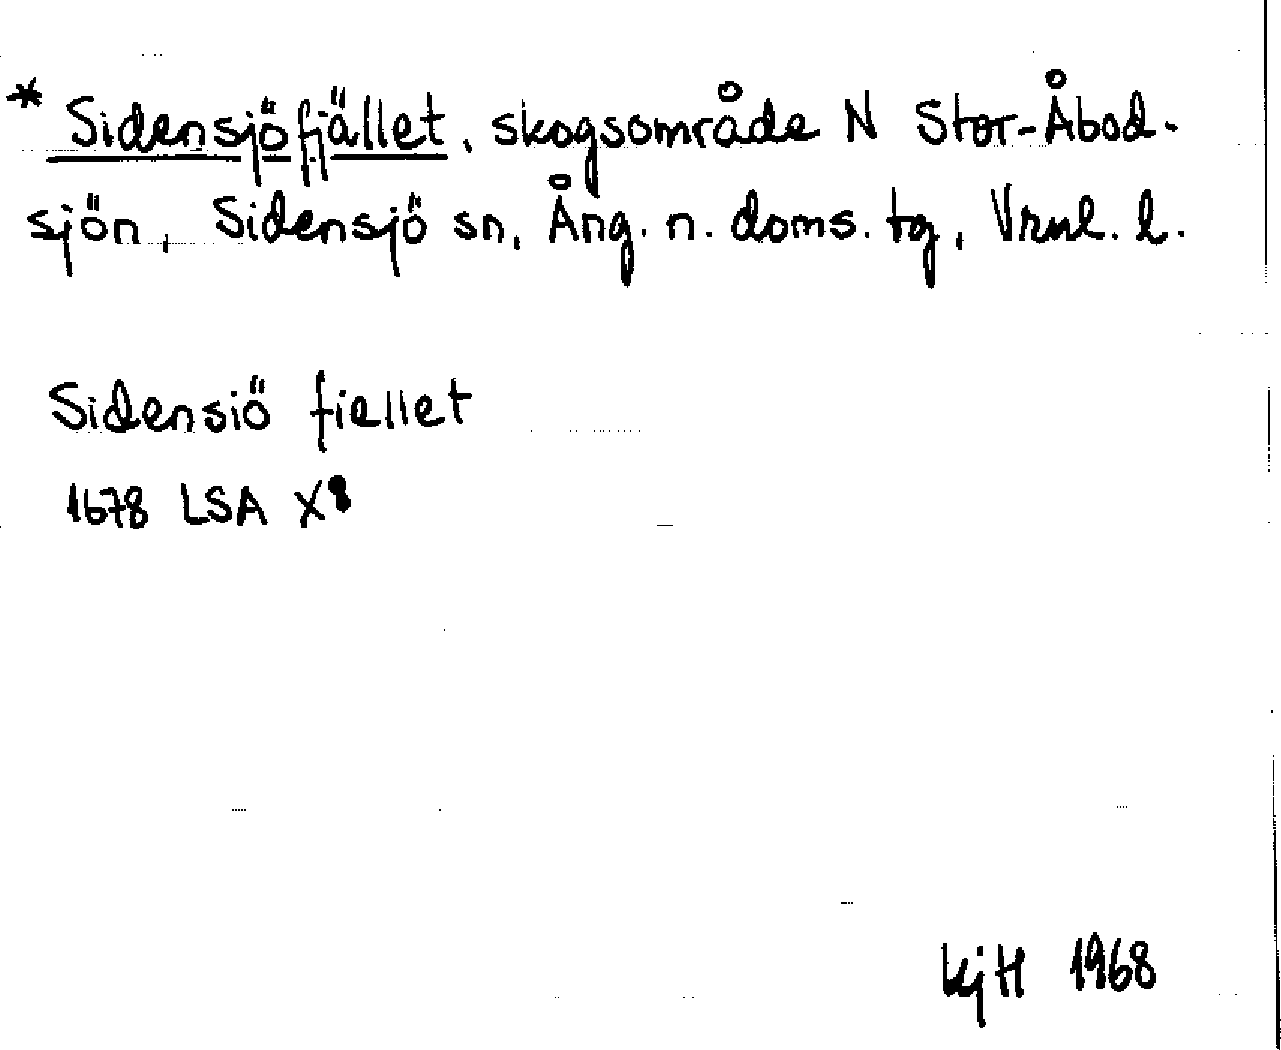 * Sidensjöfjället, skogsområde N Stor-Åbod-
sjön, Sidensjö sn, Ång. n. doms. tg, Vrnl. l.
Sidensiö fiellet
1678 LSA X8
KjH 1968